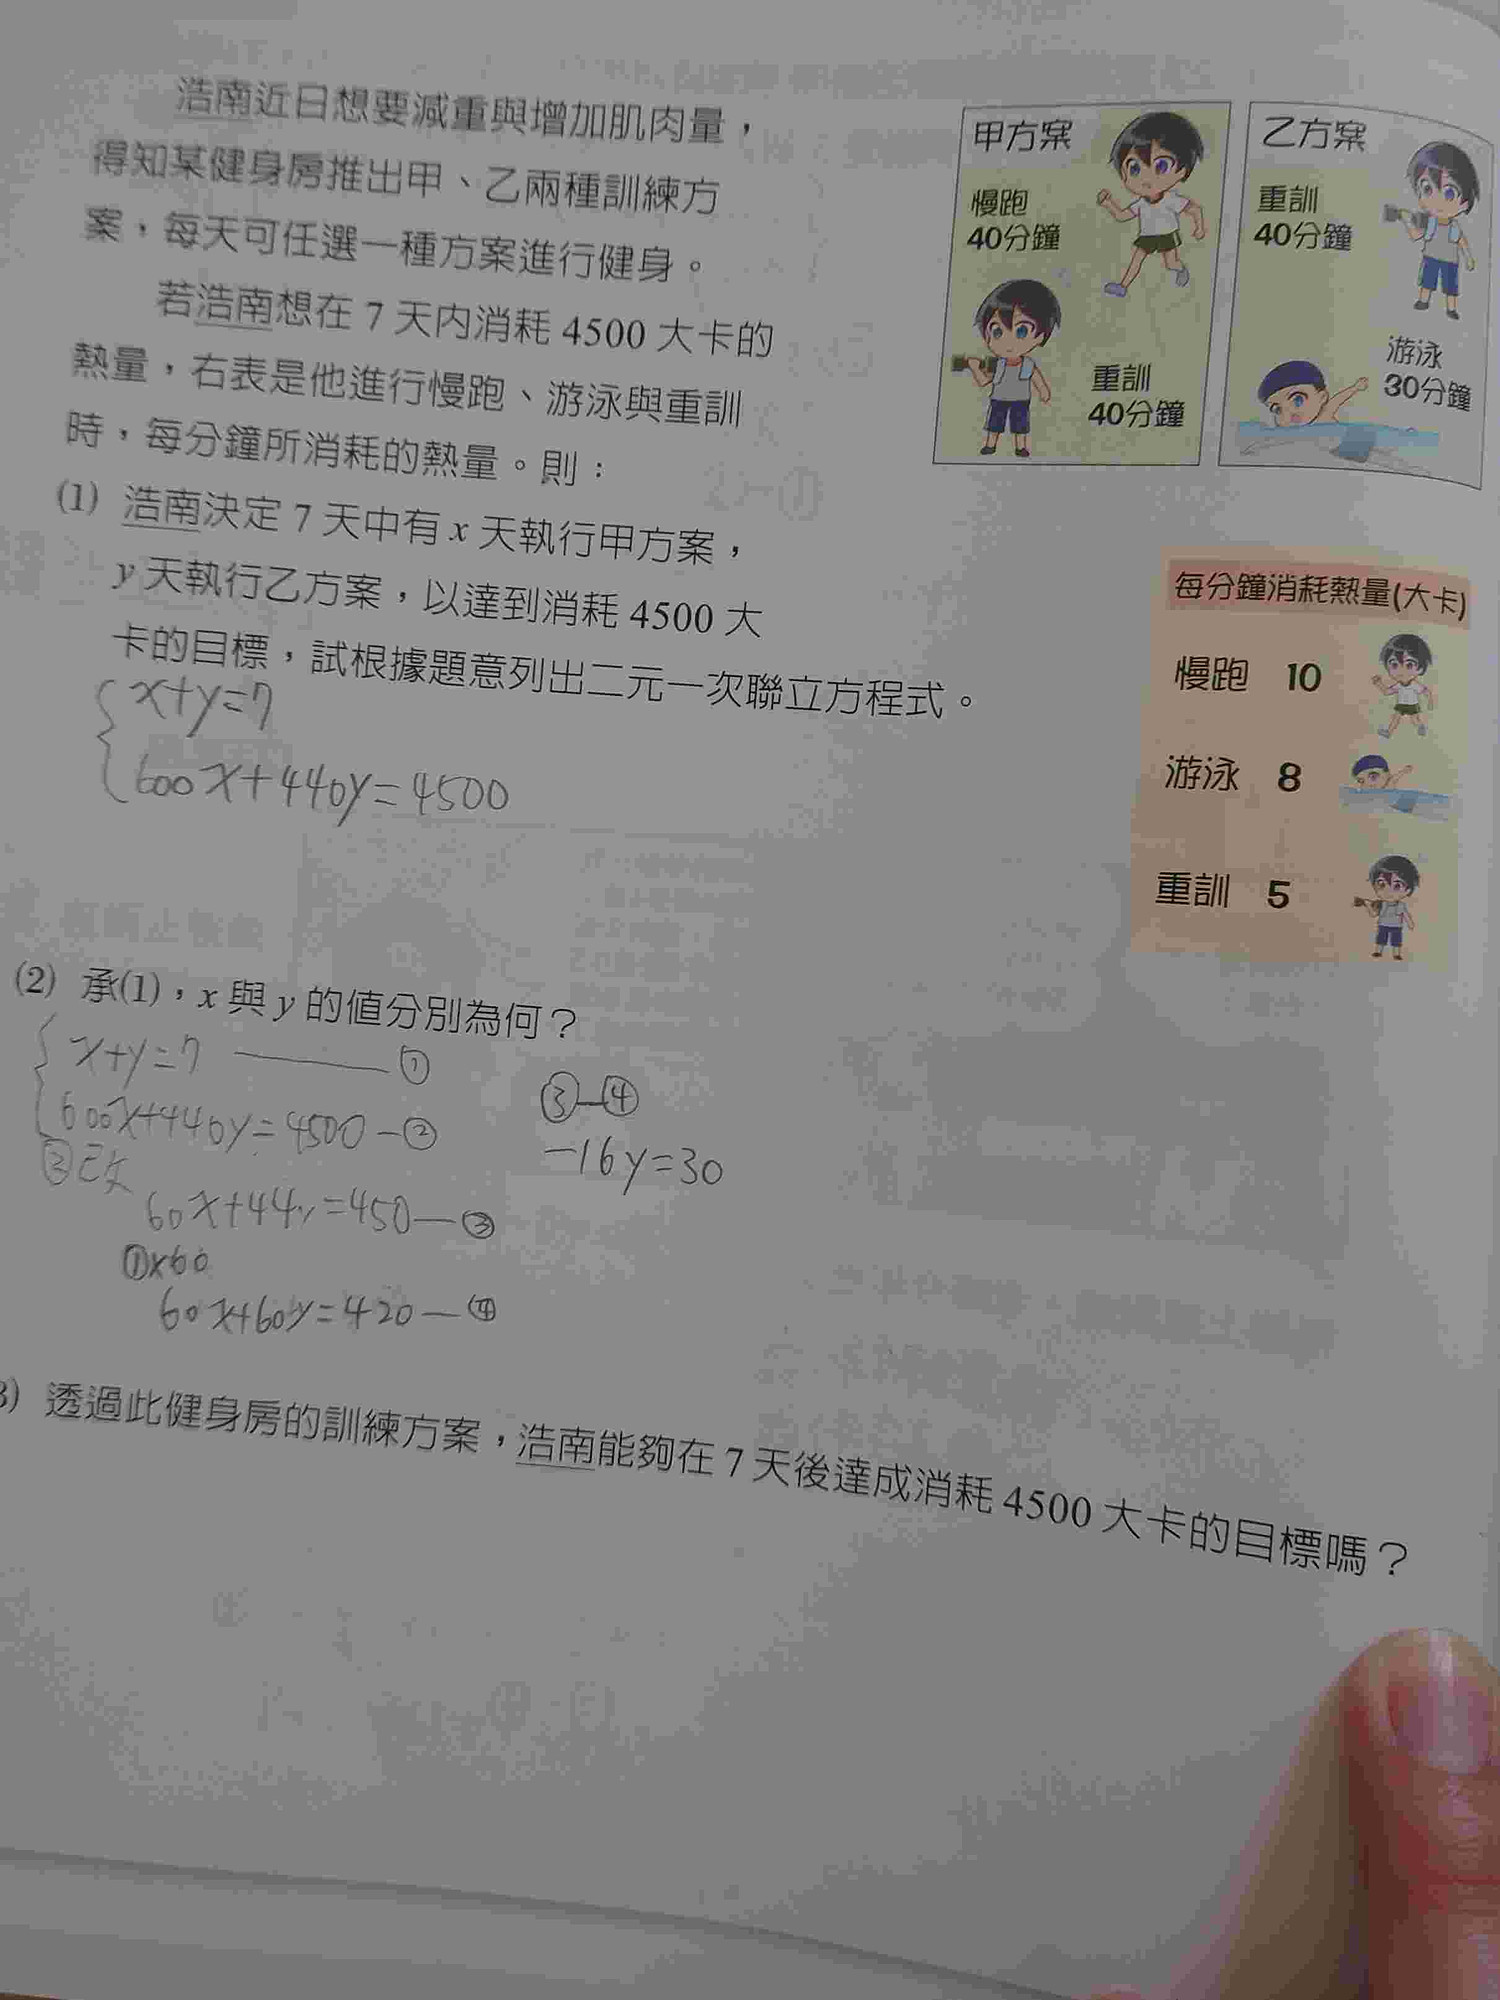 浩南近日想要減重與增加肌肉量，
得知某健身房推出甲、乙兩種訓練方
案，每天可任選一種方案進行健身。
若浩南想在 7 天內消耗 4500 大卡的
熱量，右表是他進行慢跑、游泳與重訓
時，每分鐘所消耗的熱量。則：
甲方案
慢跑
40分鐘
重訓
40分鐘
乙方案
重訓
40分鐘
游泳
30分鐘
(1) 浩南決定 7 天中有 x 天執行甲方案，
y 天執行乙方案，以達到消耗 4500 大
卡的目標，試根據題意列出二元一次聯立方程式。
x+y=7
600x+440y=4500
每分鐘消耗熱量(大卡)
慢跑 10
游泳 8
重訓 5
(2) 承(1)，x 與 y 的值分別為何？
x+y=7 — ①
600x+440y=4500 — ②
60x+44y=450 — ③
①×60
60x+60y=420 — ④
③—④
-16y=30
3) 透過此健身房的訓練方案，浩南能夠在 7 天後達成消耗 4500 大卡的目標嗎？